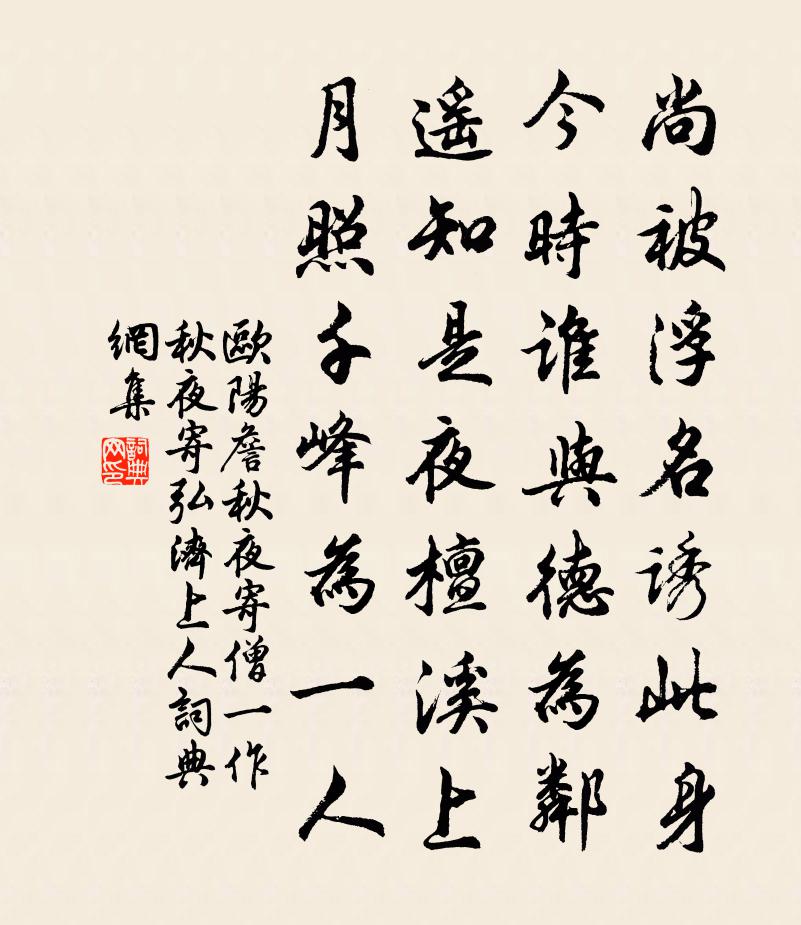 尚被浮名誘此身
今時誰與德為鄰
遥知是夜檀溪上
月照千峰為一人
歐陽詹秋夜寄僧一作
秋夜寄弘濟上人詞典
網集
詞典
网印